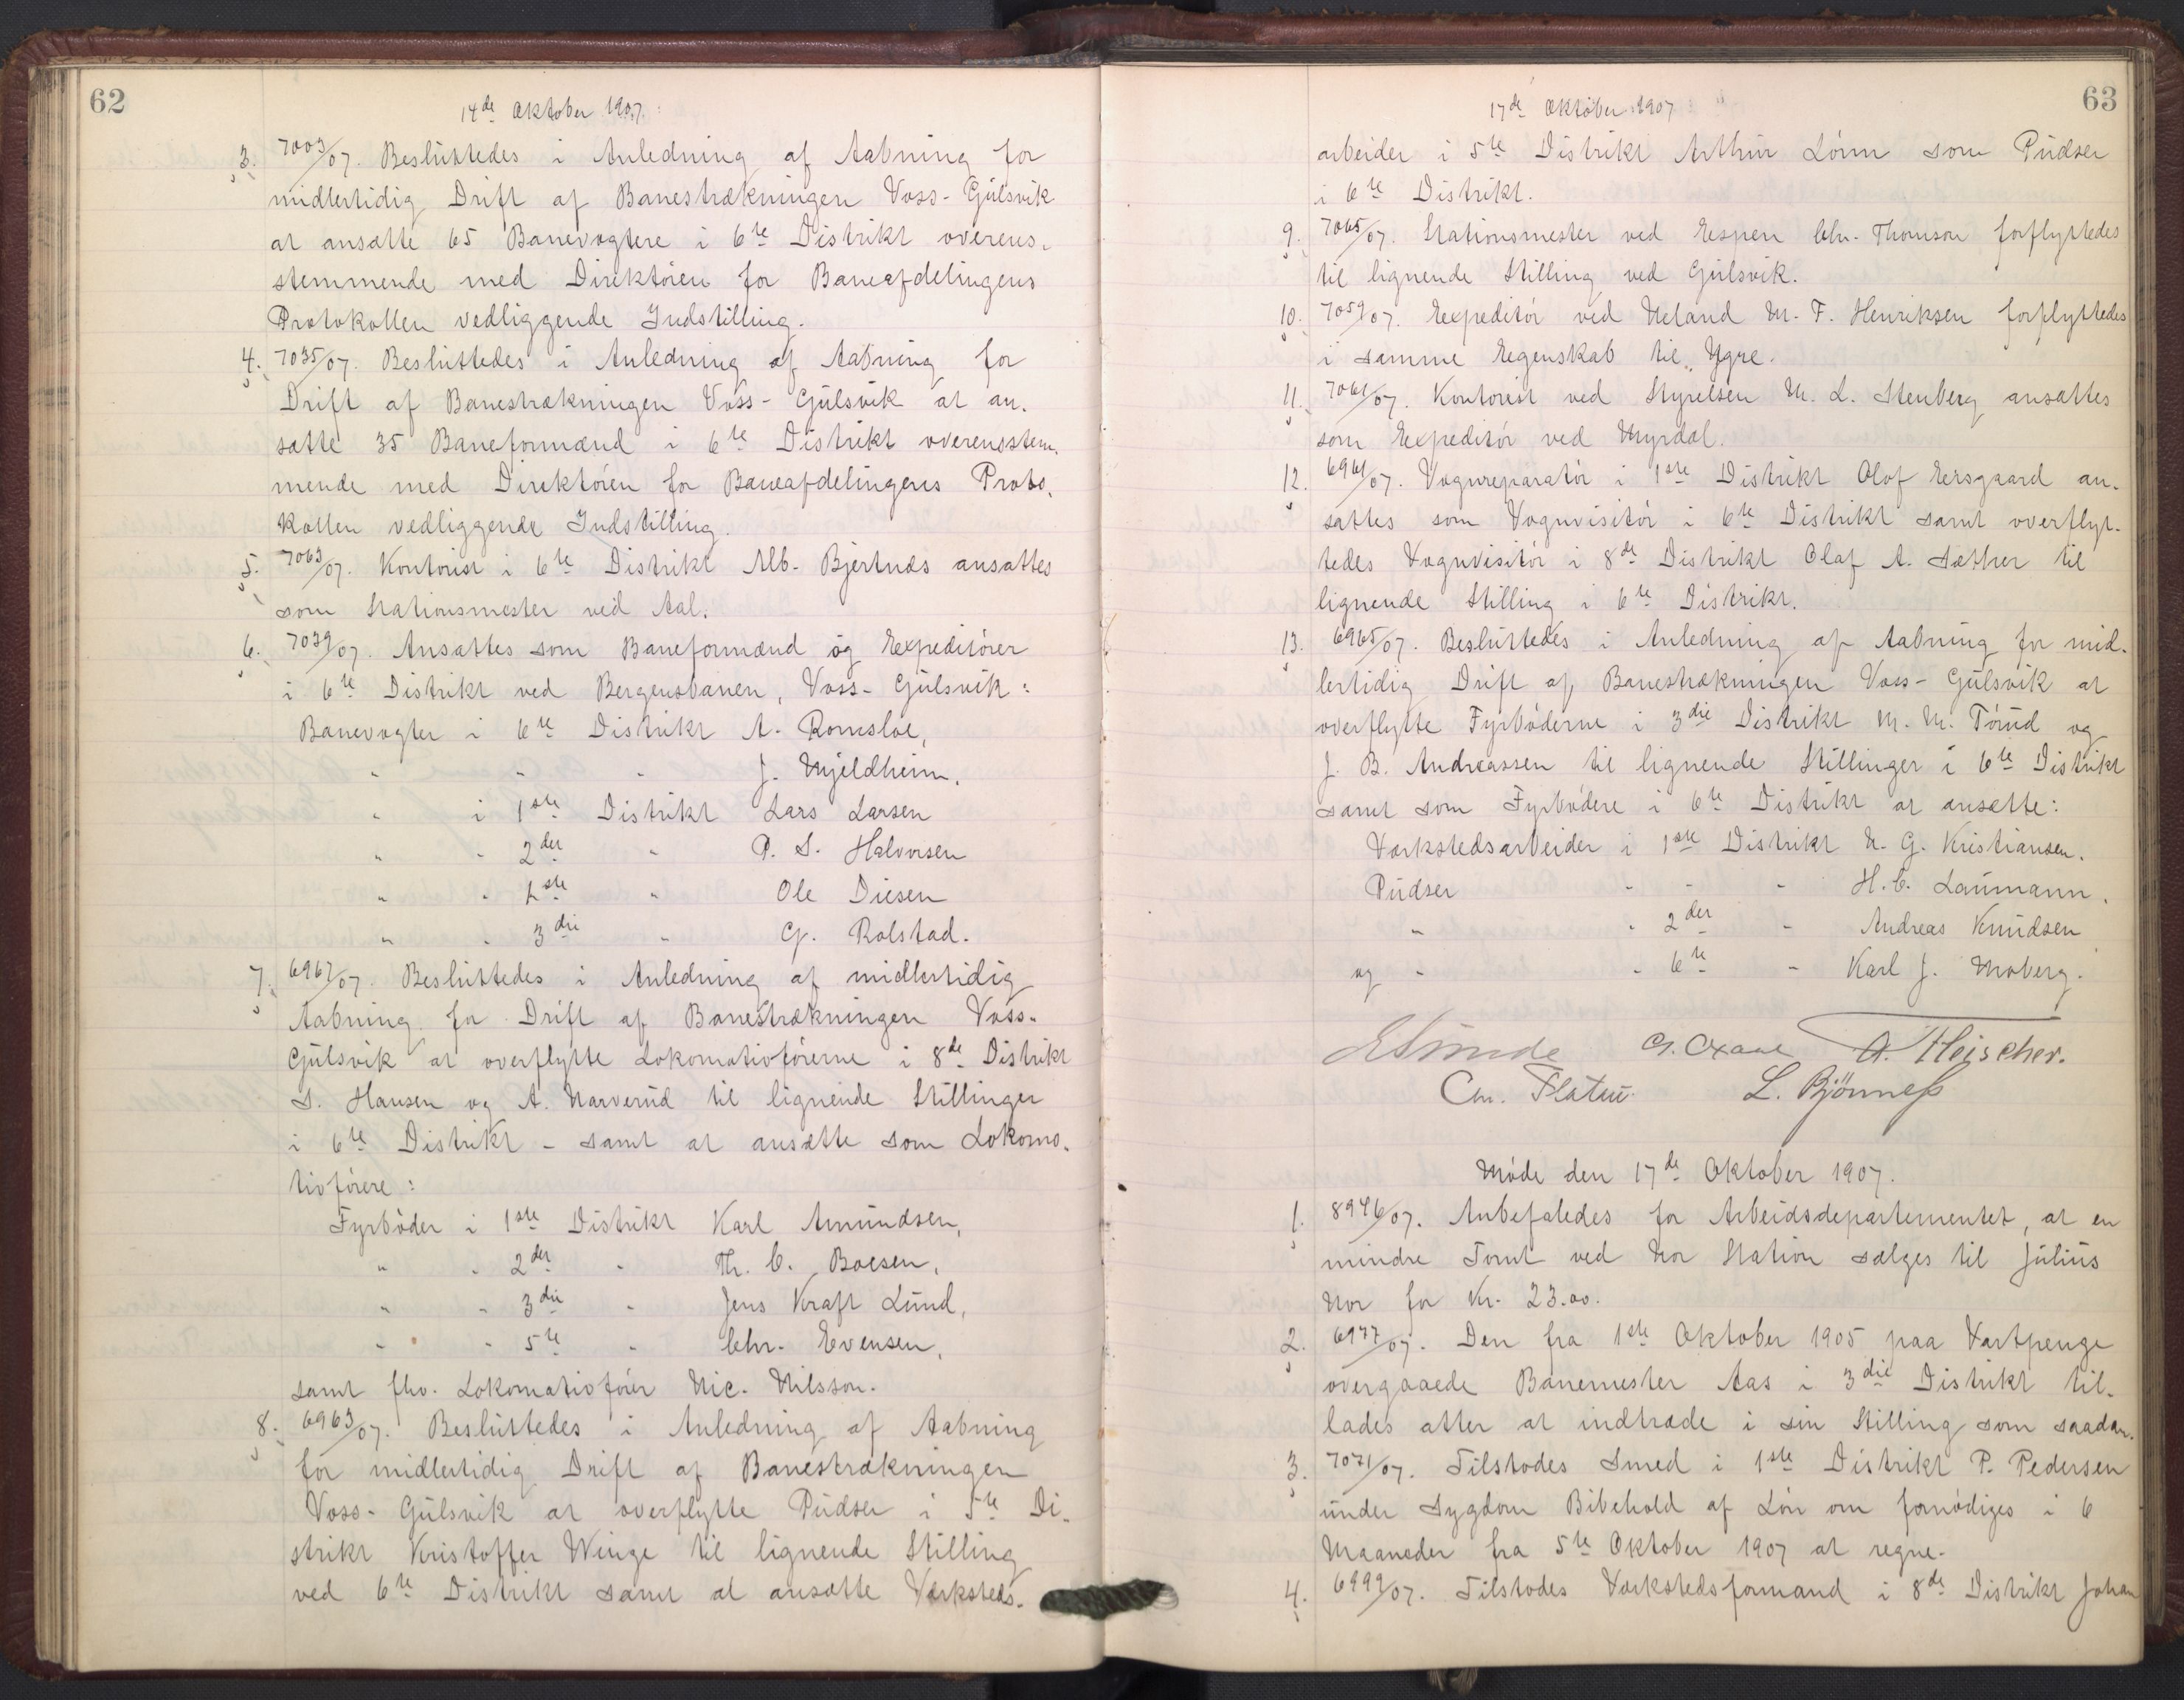 62
14de Oktober 1907.
3. 7003/07. Besluttedes i Anledning af Aabning for
midlertidig Drift af Banestrækningen Voss-Gulsvik
at ansætte 65 Banevogtere i 6te Distrikt overens-
stemmende med Direktøren for Baneafdelingens
Protokollen vedliggende Indstilling.
4. 7035/07. Besluttedes i Anledning af Aabning for
Drift af Banestrækningen Voss-Gulsvik at an-
sætte 35 Baneformænd i 6te Distrikt overensstem-
mende med Direktøren for Baneafdelingens Proto-
kollen vedliggende Indstilling.
5. 7063/07. Kontorist i 6te Distrikt Alb. Bjertnæs ansattes
som Stationsmester ved Aal.
6. 7039/07. Ansattes som Baneformænd og Expeditører
i 6te Distrikt ved Bergensbanen, Voss-Gulsvik:
Banevogter i 6te Distrikt A. Romsloe,
" " " J. Mjeldheim,
" i 1ste Distrikt Lars Larsen
" " 2der " P. S. Halvorsen
" " 1ste " Ole Diesen
" " 3die " G. Rolstad.
7. 6967/07. Besluttedes i Anledning af midlertidig
Aabning for Drift af Banestrækningen Voss-
Gulsvik at overflytte Lokomotivførerne i 8de Distrikt
S. Hansen og A. Narverud til lignende Stillinger
i 6te Distrikt - samt at ansætte som Lokomo-
tivførere:
Fyrbøder i 1ste Distrikt Karl Amundsen,
" " 2der " Th. C. Boesen,
" " 3die " Jens Kraft Lund,
" " 5te " Chr. Evensen,
samt fhv. Lokomotivfører Nic. Nilsson.
8. 6963/07. Besluttedes i Anledning af Aabning
for midlertidig Drift af Banestrækningen
Voss-Gulsvik at overflytte Pudser i 5te Di-
strikt Kristoffer Winge til lignende Stilling
ved 6te Distrikt samt at ansætte Værksteds-
63
17de Oktober 1907
arbeider i 5te Distrikt Arthur Lönn som Pudser
i 6te Distrikt.
9. 7065/07. Stationsmester ved Espen Chr. Thomson forflyttedes
til lignende Stilling ved Gulsvik.
10. 7059/07. Expeditør ved Neland M. F. Henriksen forflyttedes
i samme Egenskab til Ygre.
11. 7061/07. Kontorist ved Styrelsen M. L. Stenberg ansattes
som Expeditør ved Myrdal.
12. 6961/07. Vognreparatør i 1ste Distrikt Olof Eersgaard an-
sattes som Vognvisitør i 6te Distrikt samt overflyt-
tedes Vognvisitør i 8de Distrikt Olaf A. Sæther til
lignende Stilling i 6te Distrikt.
13. 6965/07. Besluttedes i Anledning af Aabning for mid-
lertidig Drift af Banestrækningen Voss-Gulsvik at
overflytte Fyrbøderne i 3die Distrikt M. M. Tørud og
J. B. Andreassen til lignende Stillinger i 6te Distrikt
samt som Fyrbødere i 6te Distrikt at ansætte:
Værkstedsarbeider i 1ste Distrikt N. G. Kristiansen.
Pudser " " " H. C. Laumann.
" " 2der " Andreas Knudsen
og " " 6te " Karl J. Moberg.
ESunde A. Fleischer.
Chr. Platou. L. Bjørnness
Møde den 17de Oktober 1907.
1. 8946/07. Anbefaledes for Arbeidsdepartementet, at en
mindre Tomt ved Mor Station sælges til Julius
Mor for Kr. 23.00.
2. 6977/07. Den fra 1ste Oktober 1905 paa Vartpenge
overgaaede Banemester Aas i 3die Distrikt til-
lades atter at indtræde i sin Stilling som saadan.
3. 7071/07. Tilstodes Smed i 1ste Distrikt P. Pedersen
under Sygdom Bibehold af Løn om fornødiges i 6
Maaneder fra 5te Oktober 1907 at regne.
4. 6999/07. Tilstodes Værkstedsformand i 8de Distrikt Johan